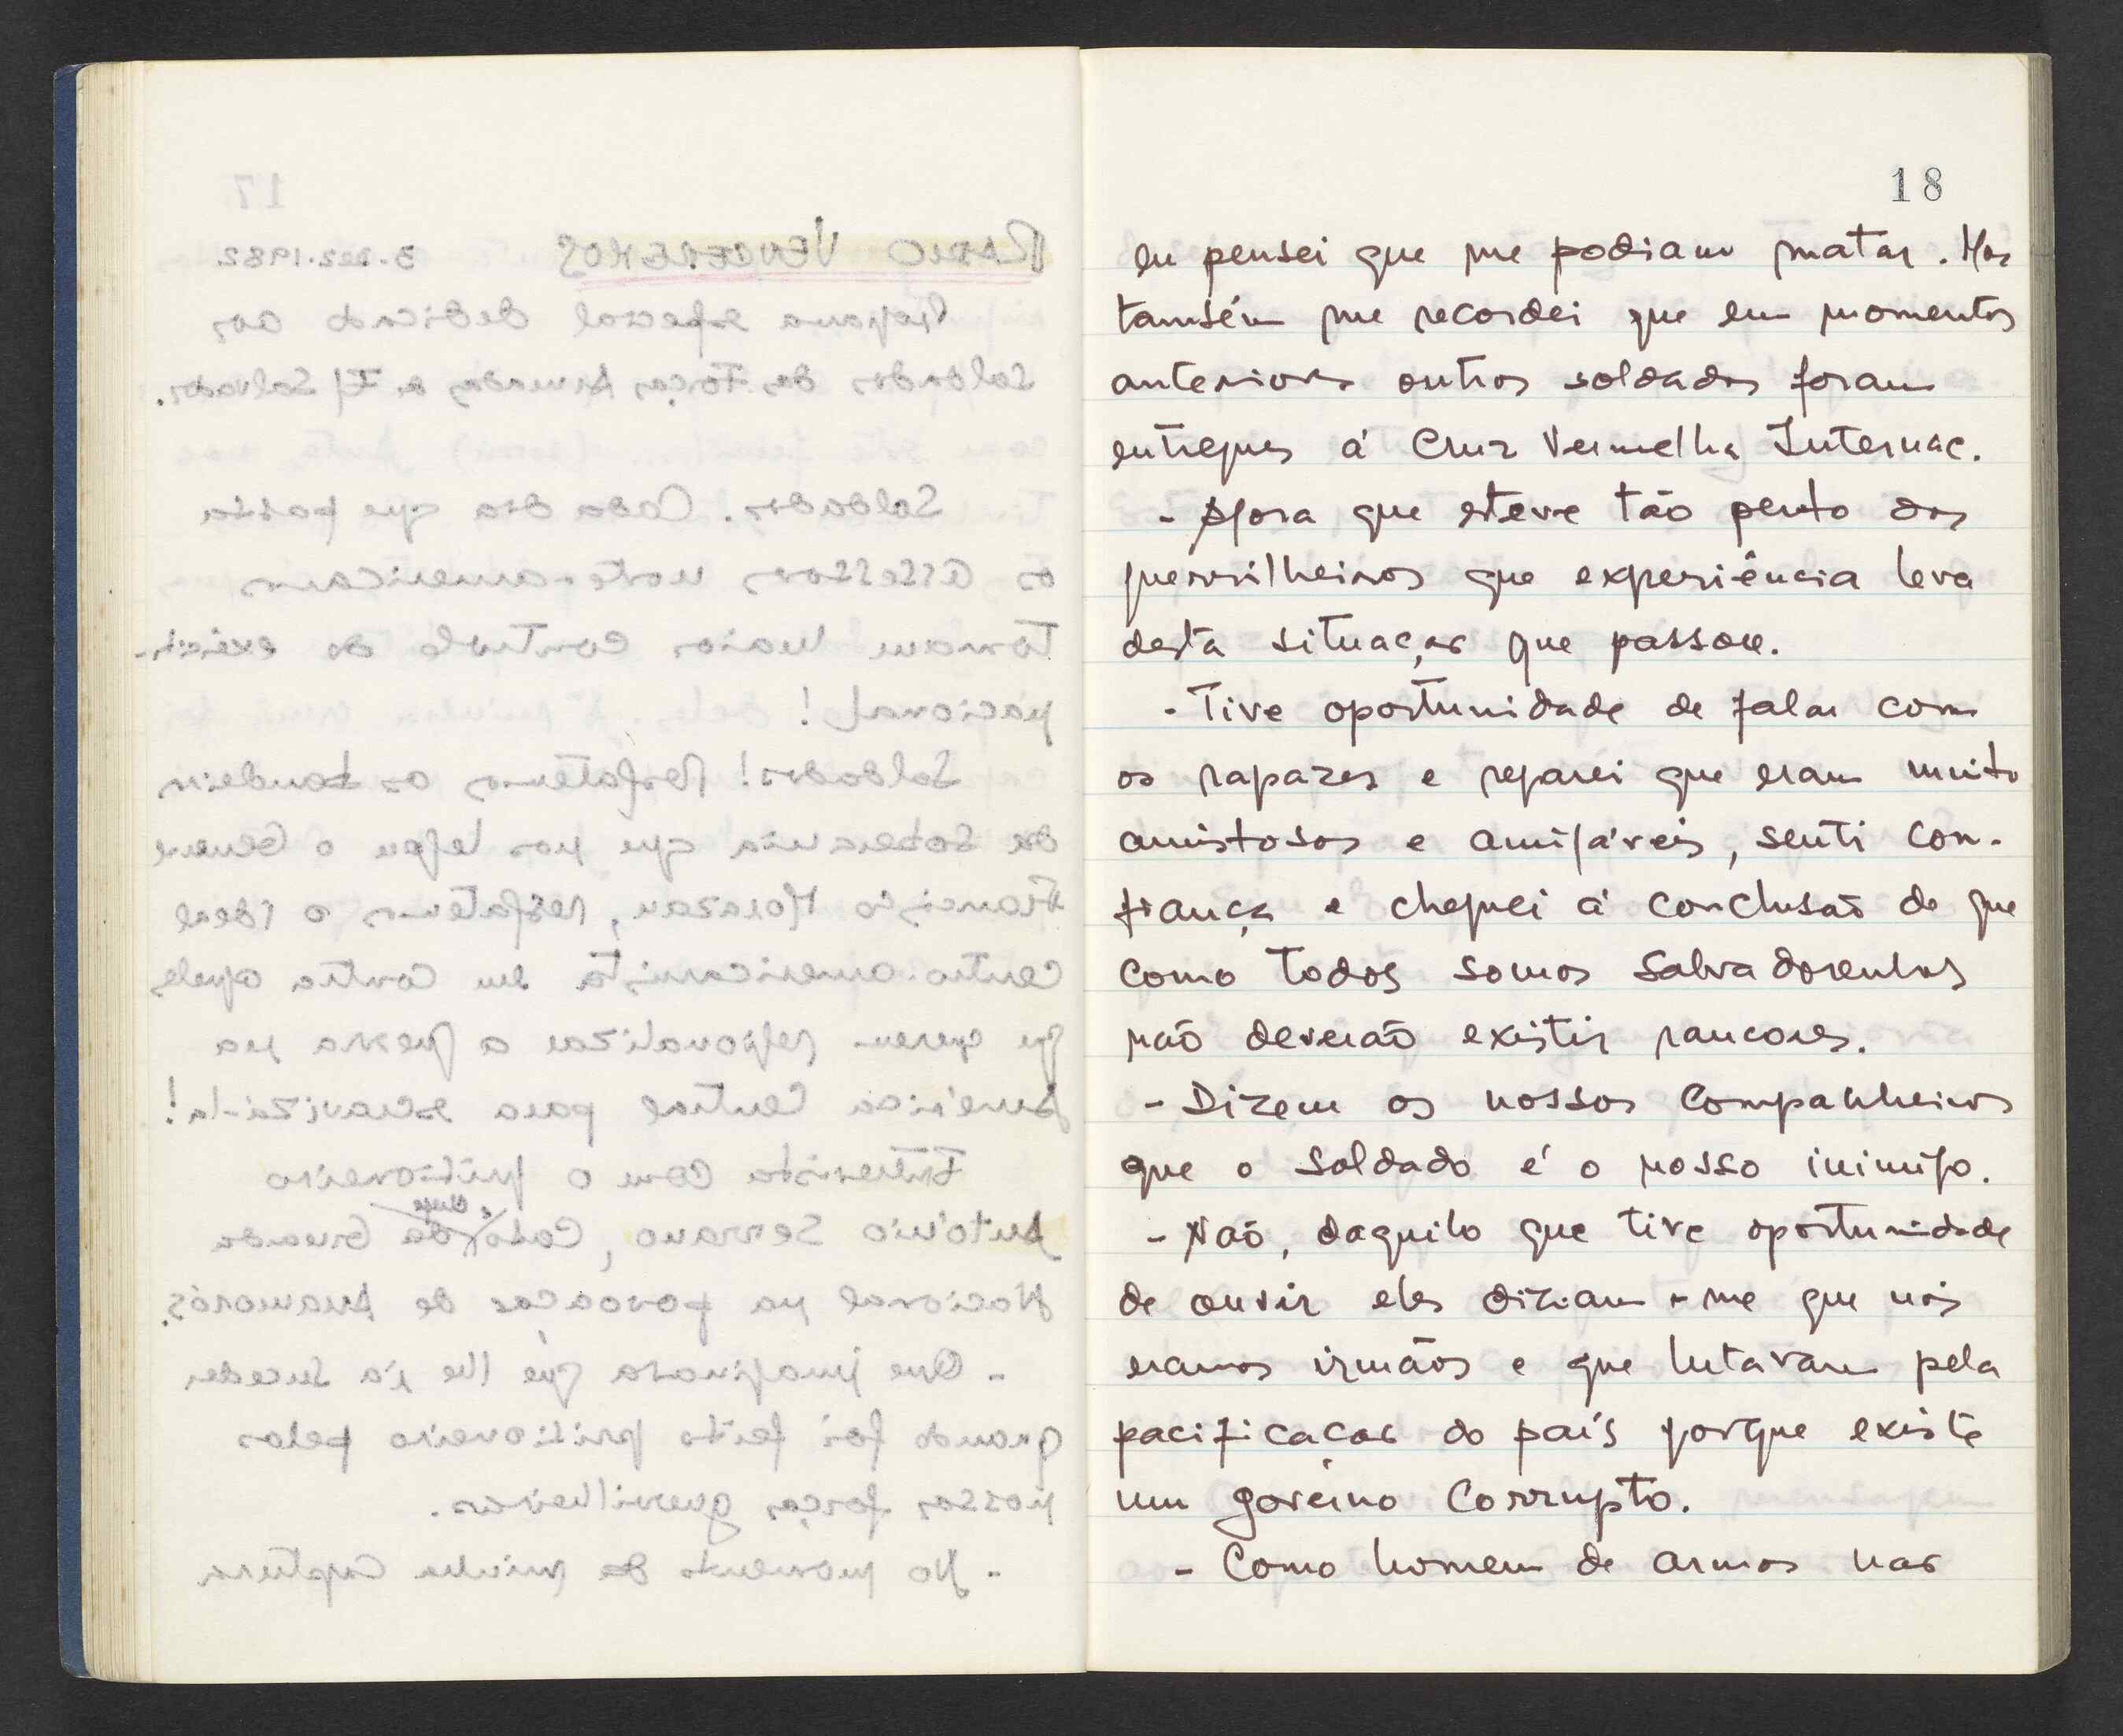 18
eu pensei que me podiam matar. Mas
também me recordei que em momentos
anteriores outros soldados foram
entregues á Cruz Vermelha Internac.
- Agora que esteve tão perto dos
guerrilheiros que experiência leva
desta situação que passou.
- Tive oportunidade de falar com
os rapazes e reparei que eram muito
amistosos e amigáveis, senti con-
fiança e cheguei á conclusão de que
como todos somos salvadorenhos
não deverão existir rancores.
- Dizem os nossos companheiros
que o soldado é o nosso inimigo.
- Não, daquilo que tive oportunidade
de ouvir eles diziam-me que nós
eramos irmãos e que lutavam pela
pacificação do país porque existe
um governo corrupto.
- Como homem de armas nas
17
RADIO VENCEREMOS 3.DEZ.1982
Programa especial dedicado aos
soldados das Forças Armadas a El Salvador.
Soldados. Cada dia que passa
os assessores norte-americanos
tomam maior controlo do exérci-
nacional!
da soberania que nos legou o General
Francisco Morazan, o ideal
centro americanista em contra aqueles
que querem regionalizar a guerra na
América Central para escraviza-la!
Entrevista com o prisioneiro
António Serrano, Cabo da Guarda
Nacional na povoação de Anamorós.
- Que imaginava que lhe ia suceder
quando foi feito prisioneiro pelas
nossas forças guerrilheiras.
- No momento da minha captura